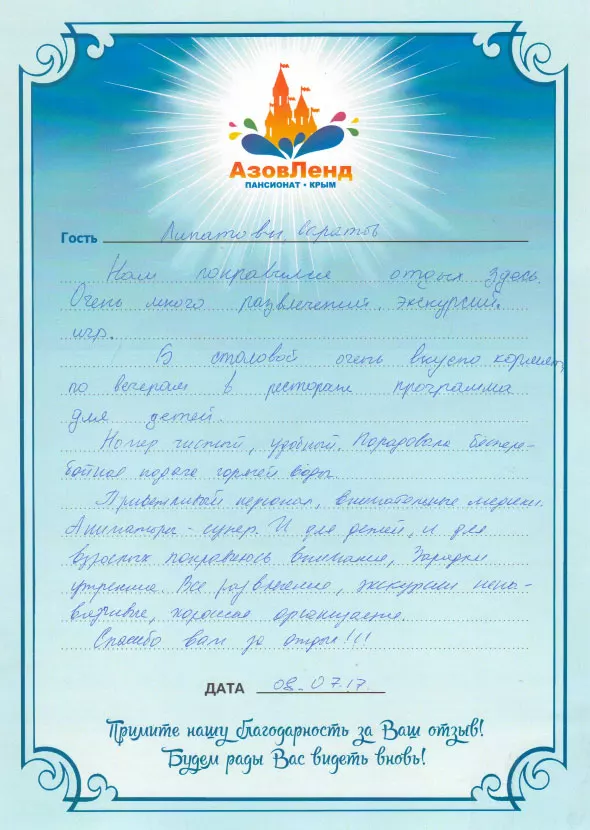 АзовЛенд
ПАНСИОНАТ • КРЫМ
Гость Липатовы, Саратов
Нам понравился отдых здесь.
Очень много развлечений, экскурсий,
игр.
В столовой очень вкусно кормят,
по вечерам в ресторане программа
для детей.
Номер чистый, удобный. Порадовала беспере-
бойная подача горячей воды.
Приветливый персонал, внимательные медики.
Аниматоры - супер. И для детей, и для
взрослых понравилось внимание, зарядки
утренние. Все развлечения, экскурсии нена-
вязчивые, хорошая организация.
Спасибо вам за отдых!!!
ДАТА 08.07.17.
Примите нашу благодарность за Ваш отзыв!
Будем рады Вас видеть вновь!